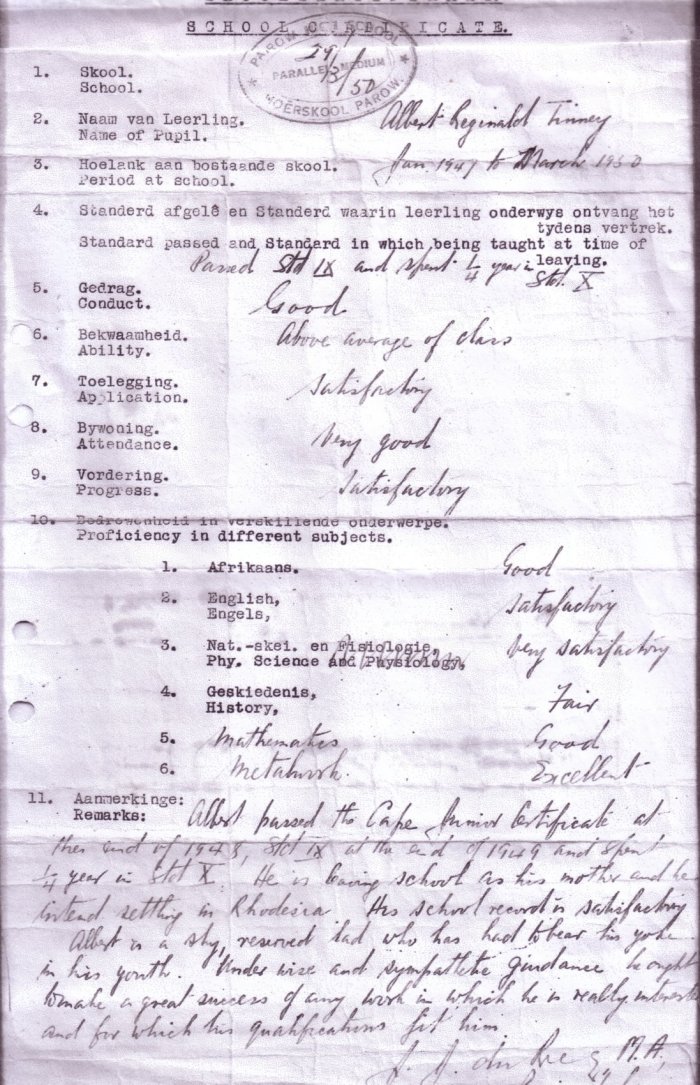 SCHOOL CERTIFICATE.
PAROW SCHOOL
29/3/50
PARALLEL MEDIUM
HOËRSKOOL PAROW.
1. Skool.
School.
2. Naam van Leerling. Albert Reginald Tinney
Name of Pupil.
3. Hoelank aan bostaande skool. Jan. 1947 to March 1950
Period at school.
4. Standerd afgelê en Standerd waarin leerling onderwys ontvang het
tydens vertrek.
Standard passed and Standard in which being taught at time of
leaving.
Passed Std IX and spent 1/4 year in Std. X
5. Gedrag. Good
Conduct.
6. Bekwaamheid. Above average of class
Ability.
7. Toelegging. Satisfactory
Application.
8. Bywoning. Very good
Attendance.
9. Vordering. Satisfactory
Progress.
10. Bedrewenheid in verskillende onderwerpe.
Proficiency in different subjects.
1. Afrikaans. Good
2. English, Satisfactory
Engels,
3. Nat.-skei. en Fisiologie, Very satisfactory
Phy. Science and Physiology,
4. Geskiedenis, Fair
History,
5. Mathematics Good
6. Metalwork. Excellent
11. Aanmerkinge:
Remarks: Albert passed the Cape Junior Certificate at
the end of 1948, Std IX at the end of 1949 and spent
1/4 year in Std X. He is leaving school as his mother and he
intend settling in Rhodesia. His school record is satisfactory
Albert is a shy, reserved lad who has had to bear his yoke
in his youth. Under wise and sympathetic guidance he ought
to make a great success of any work in which he is really interested
and for which his qualifications fit him.
J. J. du Preez M.A.